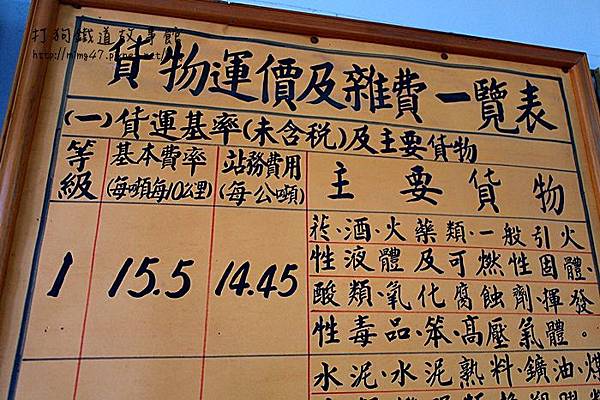 打狗鐵道故事館
貨物運價及雜費一覽表
(一)貨運基率(未含稅)及主要貨物
等級
基本費率
(每噸每10公里)
站務費用
(每公噸)
主要貨物
1
15.5
14.45
菸、酒、火藥類、一般引火
性液體及可燃性固體、
酸類、氧化腐蝕劑、揮發
性毒品、笨、高壓氣體。
水泥、水泥熟料、鑛油、煤